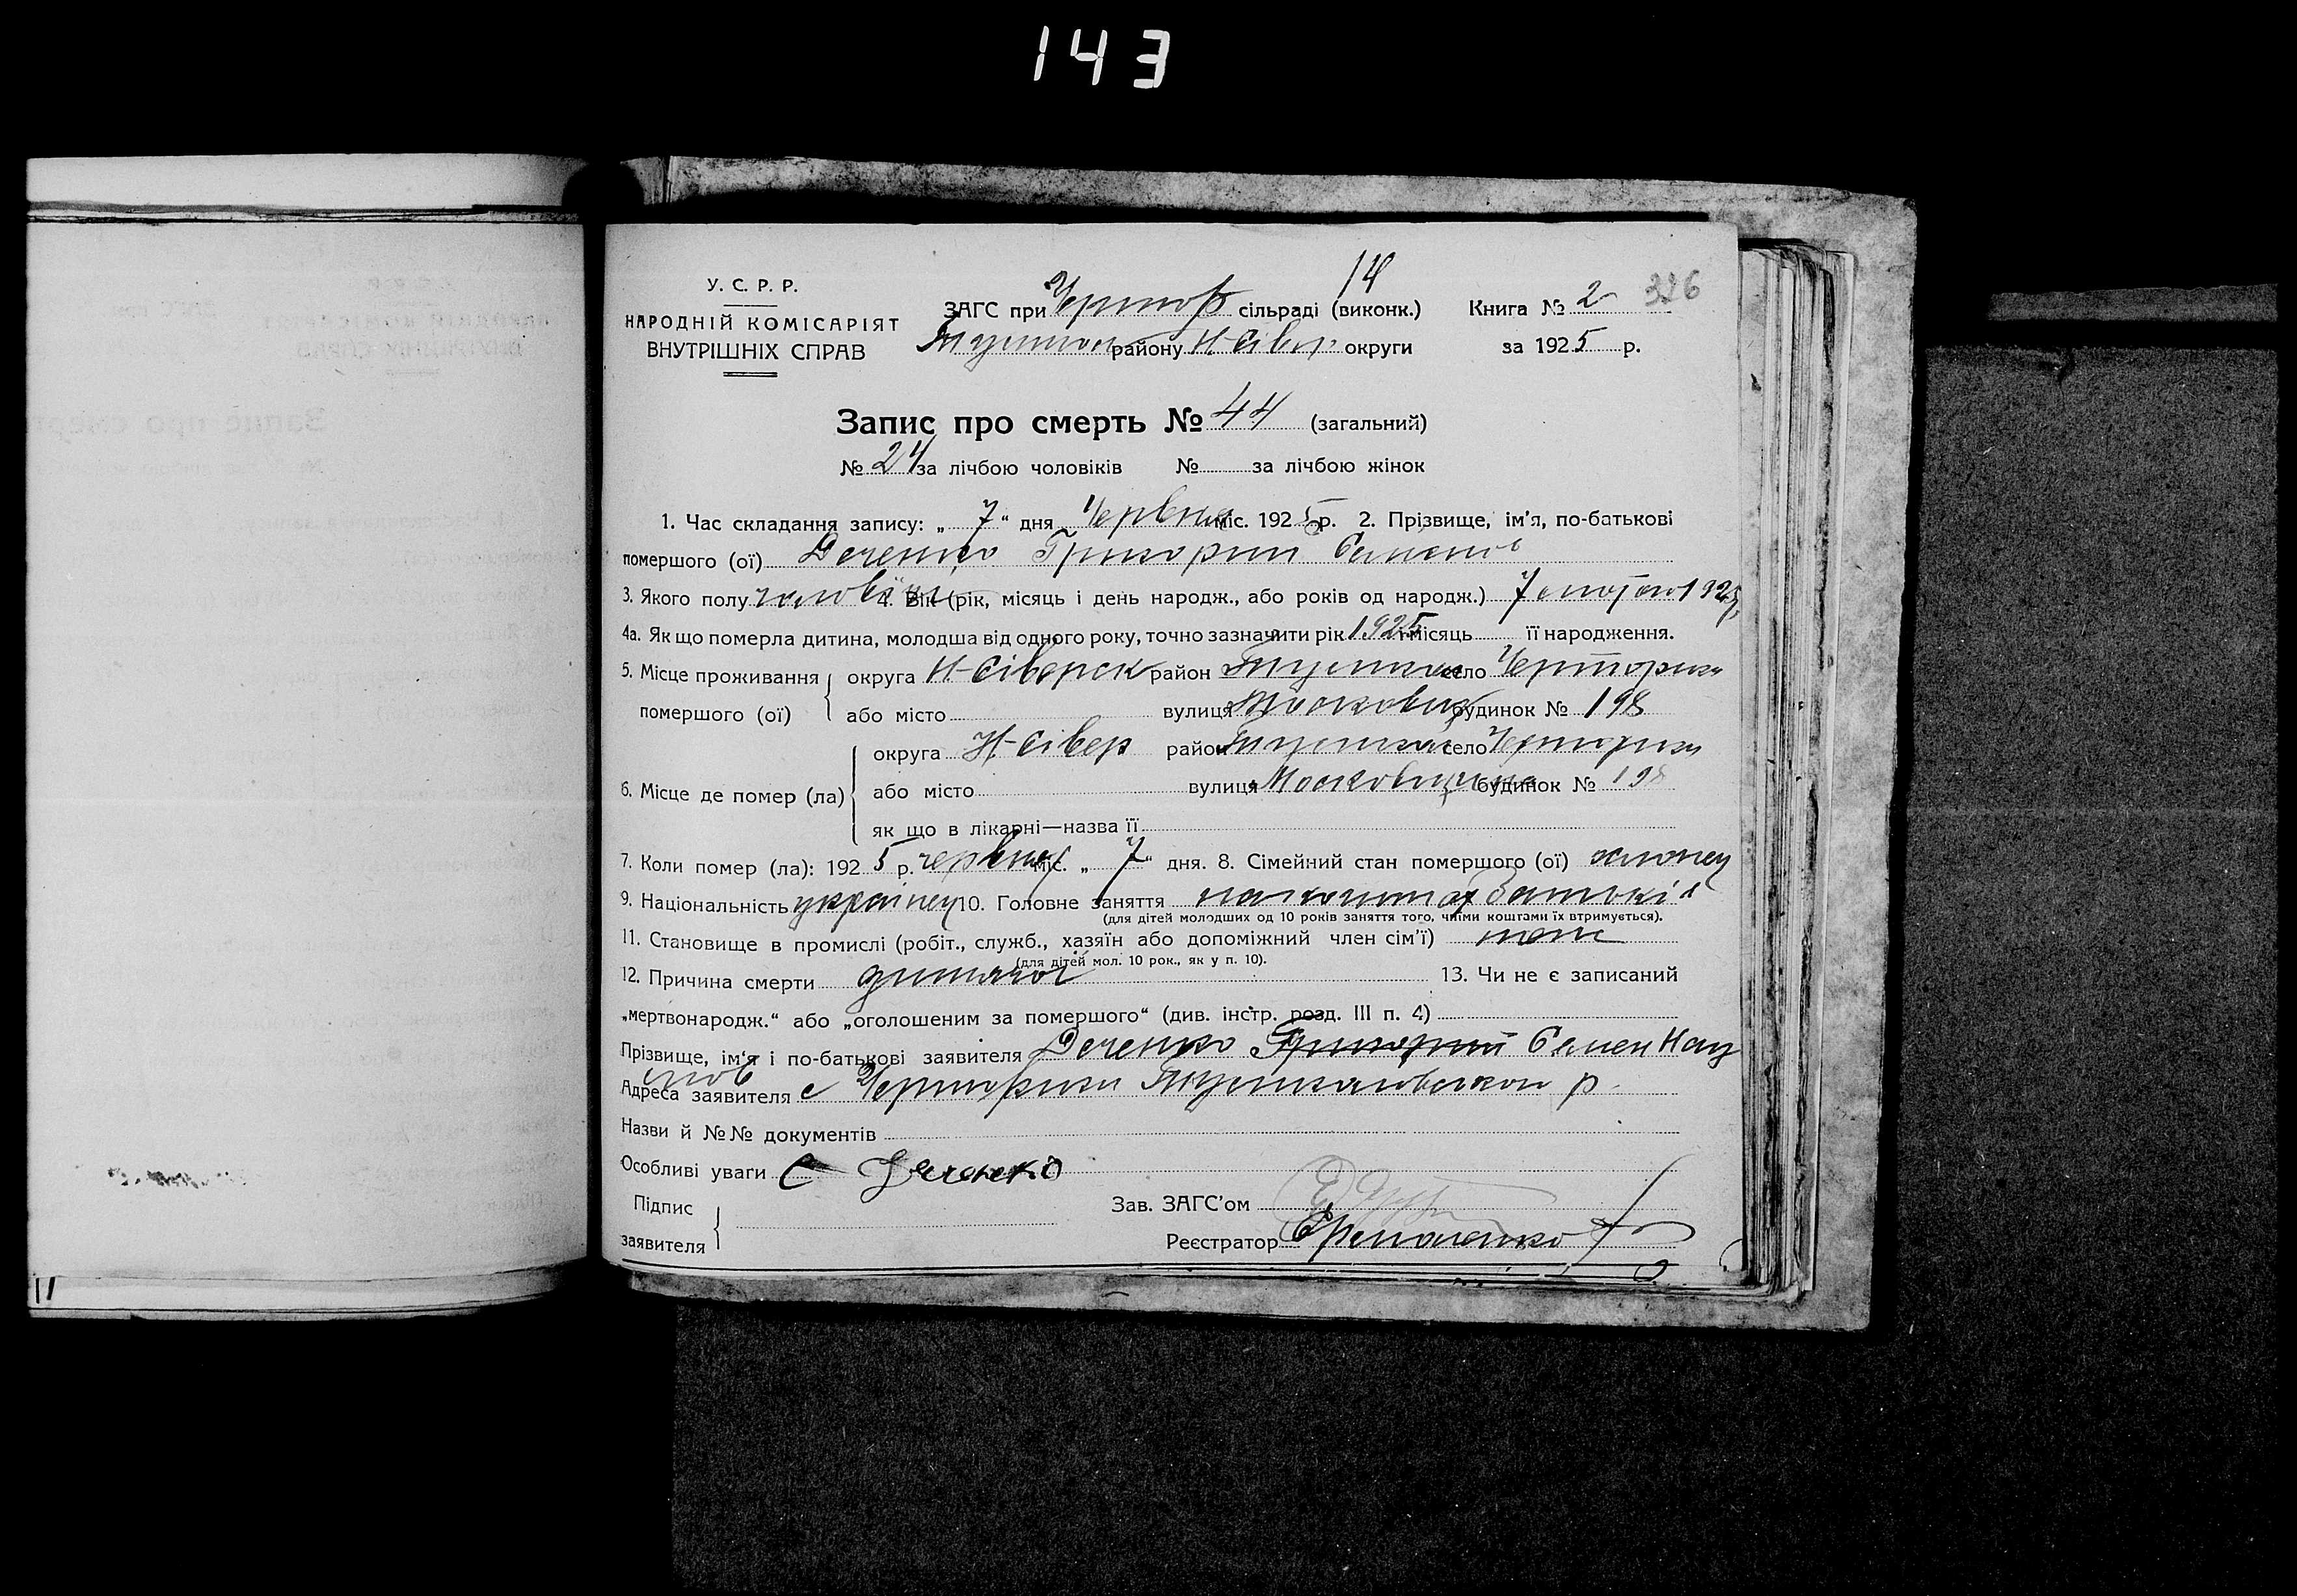 143
14
У. С. Р. Р.
НАРОДНІЙ КОМІСАРІЯТ
ВНУТРІШНІХ СПРАВ
ЗАГС при Чертор сільраді (виконк.)
району Н-Сівер округи
Книга № 2 326
за 1925 р.
Запис про смерть № 44 (загальний)
№ 24 за лічбою чоловіків № за лічбою жінок
1. Час складання запису: „ 7 “ дня Червня міс. 1925 р. 2. Прізвище, ім'я, по-батькові
помершого (ої) Деченко Григорий Семенов
3. Якого полу 4. Вік (рік, місяць і день народж., або років од народж.) 7 лютого 1925 р.
4а. Як що померла дитина, молодша від одного року, точно зазначити рік 1925 і місяць її народження.
5. Місце проживання помершого (ої) округа Н-Сіверск район село Черториги
або місто вулиця будинок № 198
6. Місце де помер (ла) округа Н-Сівер район село Черториги
або місто вулиця Московщина будинок № 198
як що в лікарні—назва її
7. Коли помер (ла): 1925 р. червня міс. „ 7 “ дня. 8. Сімейний стан помершого (ої) хлопец
9. Національність українец 10. Головне заняття батьків
(для дітей молодших од 10 років заняття того, чиїми коштами їх втримується).
11. Становище в промислі (робіт., служб., хазяїн або допоміжний член сім'ї)
(для дітей мол. 10 рок., як у п. 10).
12. Причина смерти 13. Чи не є записаний
„мертвонародж.“ або „оголошеним за помершого“ (див. інстр. розд. III п. 4)
Прізвище, ім'я і по-батькові заявителя Деченко Григорий Семен Нау
мов
Адреса заявителя с Черториги р.
Назви й №№ документів
Особливі уваги С Деченко
Підпис заявителя
Зав. ЗАГС'ом
Реєстратор
11